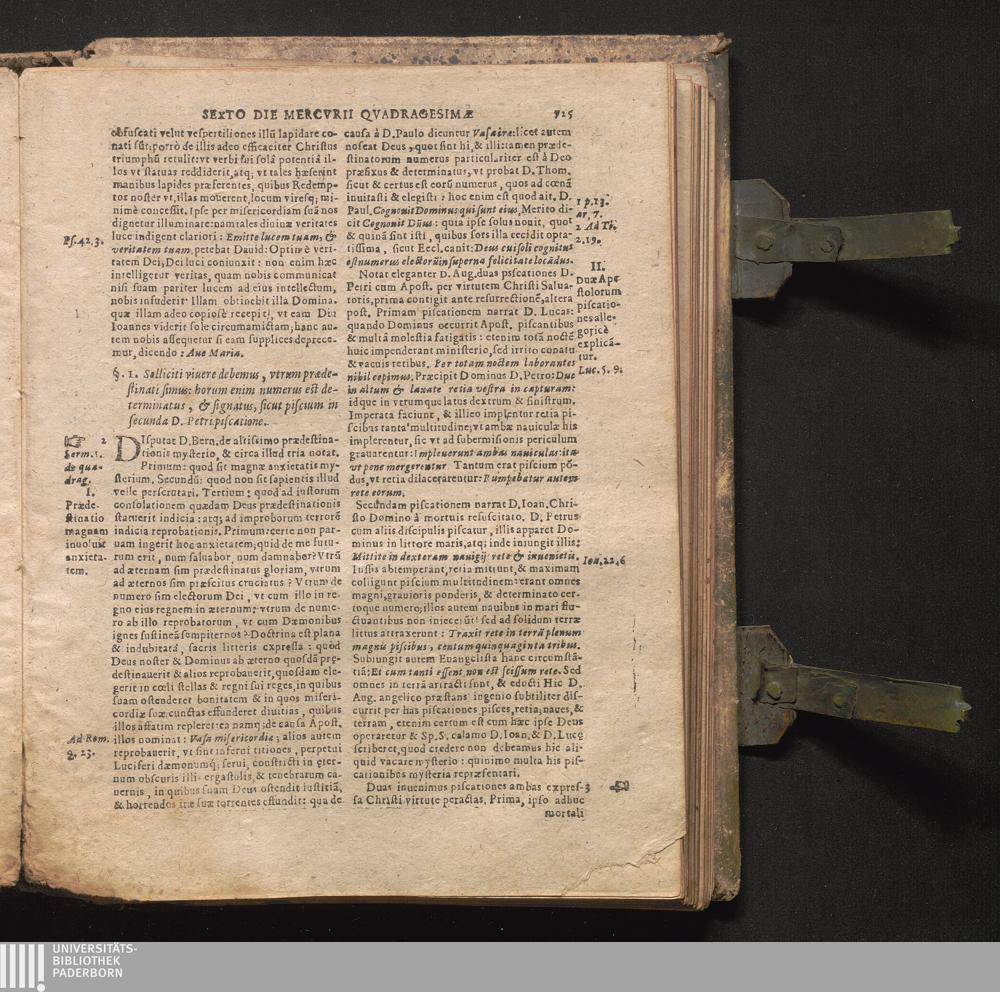 SEXTO DIE MERCVRII QVADRAGESIMÆ 725
obfuscati velut vespertiliones illū lapidare co-
nati sūt: porrò de illis adeo efficaciter Christus
triumphū retulit: vt verbi sui solâ potentiâ il-
los vt statuas reddiderit, atq; vt tales hæserint
manibus lapides præferentes, quibus Redemp-
tor noster vt, illas mouerent, locum viresq; mi-
nimè concessit. Ipse per misericordiam suā nos
dignetur illuminare: nam tales diuinæ veritates
luce indigent clariori: Emitte lucem tuam, &
veritatem tuam, petebat Dauid: Optimè veri-
tatem Dei, Dei luci coniunxit: non enim hæc
intelligetur veritas, quam nobis communicat
nisi suam pariter lucem ad eius intellectum,
nobis infuderit Illam obtinebit illa Domina,
quæ illam adeo copiosè recepit, vt eam Diu
Ioannes viderit sole circumamictam; hanc au-
tem nobis assequetur si eam supplices deprece-
mur, dicendo: Aue Maria.
Ps. 42. 3.
§. 1. Solliciti viuere debemus, vtrum præde-
stinati simus: horum enim numerus est de-
terminatus, & signatus, sicut piscium in
secunda D. Petri piscatione.
2
Serm. 1.
de qua-
drag.
I.
Præde-
stinatio
magnam
inuoluit
anxieta-
tem.
DIsputat D. Bern. de altissimo prædestina-
tionis mysterio, & circa illud tria notat.
Primum: quod sit magnæ anxietatis my-
sterium. Secundū: quod non sit sapientis illud
velle perscrutari. Tertium: quod ad iustorum
consolationem quædam Deus prædestinationis
statuerit indicia: atq; ad improborum terrorē
indicia reprobationis. Primum: certe non par-
uam ingerit hoc anxietatem; quid de me futu-
rum erit, num saluabor, num damnabor? Vtrū
ad æternam sim prædestinatus gloriam, vtrum
ad æternos sim præscitus cruciatus? Vtrum de
numero sim electorum Dei, vt cum illo in re-
gno eius regnem in æternum: vtrum de nume-
ro ab illo reprobatorum, vt cum Dæmonibus
ignes sustineā sempiternos? Doctrina est plana
& indubitata, sacris litteris expressa: quòd
Deus noster & Dominus ab æterno quosdā prę-
destinauerit & alios reprobauerit, quosdam ele-
gerit in cœli stellas & regni sui reges, in quibus
suam ostenderet bonitatem & in quos miseri-
cordiæ suæ cunctas effunderet diuitias, quibus
illos affatim repleret: ea namq; de causa Apost.
illos nominat: Vasa misericordiæ; alios autem
reprobauerit, vt sint inferni titiones, perpetui
Luciferi dæmonumq; serui, constricti in ęter-
num obscuris illis ergastulis, & tenebrarum ca-
uernis, in quibus suam Deus ostendit iustitiā,
& horrendos iræ suæ torrentes effundit: qua de
Ad Rom.
9. 23.
causa à D. Paulo dicuntur Vasa iræ: licet autem
noscat Deus, quot sint hi, & illi: tamen præde-
stinatorum numerus particulariter est à Deo
præfixus & determinatus, vt probat D. Thom.
sicut & certus est eorū numerus, quos ad cœnā
inuitasti & elegisti: hoc enim est quod ait. D.
Paul. Cognouit Dominus qui sunt eius, Merito di-
cit Cognouit Dñus: quia ipse solus nouit, quot
& quinā sint isti, quibus sors illa cecidit opta-
tissima, sicut Eccl. canit: Deus cui soli cognitus
est numerus electorū in superna felicitate locādus.
1 p. 13.
ar, 7.
2 Ad Ti.
2. 19.
Notat eleganter D. Aug. duas piscationes D.
Petri cum Apost. per virtutem Christi Salua-
toris, prima contigit ante resurrectionē, altera
post. Primam piscationem narrat D. Lucas:
quando Dominus occurrit Apost. piscantibus
& multâ molestia fatigatis: etenim totā noctē
huic impenderant ministerio, sed irrito conatu
& vacuis retibus. Per totam noctem laborantes
nihil cepimus. Præcipit Dominus D. Petro: Duc
in altum & laxate retia vestra in capturam:
idque in vtrumque latus dextrum & sinistrum.
Imperata faciunt, & illico implentur retia pi-
scibus tanta multitudine; vt ambæ nauiculæ his
implerentur, sic vt ad submersionis periculum
grauarentur: Impleuerunt ambas nauiculas: ita
vt pene mergerentur Tantum erat piscium pō-
dus, vt retia dilacerarentur: Rumpebatur autem
rete eorum.
II.
Duæ Apo
stolorum
piscatio-
nes alle-
goricè
explicā-
tur.
Luc. 5. 9.
Secundam piscationem narrat D. Ioan. Chri-
sto Domino à mortuis resuscitato. D. Petrus
cum aliis discipulis piscatur, illis apparet Do-
minus in littore maris, atq; inde iniungit illis:
Mittite in dexteram nauigij rete & inuenietis.
Iussis obtemperant, retia mittunt, & maximam
colligunt piscium multitudinem: erant omnes
magni, grauioris ponderis, & determinato cer-
toque numero; illos autem nauibus in mari flu-
ctuantibus non iniecerūt sed ad solidum terræ
littus attraxerunt: Traxit rete in terrā plenum
magnis piscibus, centum quinquaginta tribus.
Subiungit autem Euangelista hanc circumstā-
tiā: Et cum tanti essent, non est scissum rete. Sed
omnes in terrā attracti sunt, & educti Hic D.
Aug. angelico præstans ingenio subtiliter dis-
currit per has piscationes pisces, retia, naues, &
terram, etenim certum est cum hæc ipse Deus
operaretur & Sp. S. calamo D. Ioan. & D. Lucę
scriberet, quod credere non debeamus hic ali-
quid vacare mysterio: quinimo multa his pis-
cationibus mysteria repræsentari.
Ioa. 22. 6
Duas inuenimus piscationes ambas expres-
sa Christi virtute peractas. Prima, ipso adhuc
3
mortali
UNIVERSITÄTS-
BIBLIOTHEK
PADERBORN